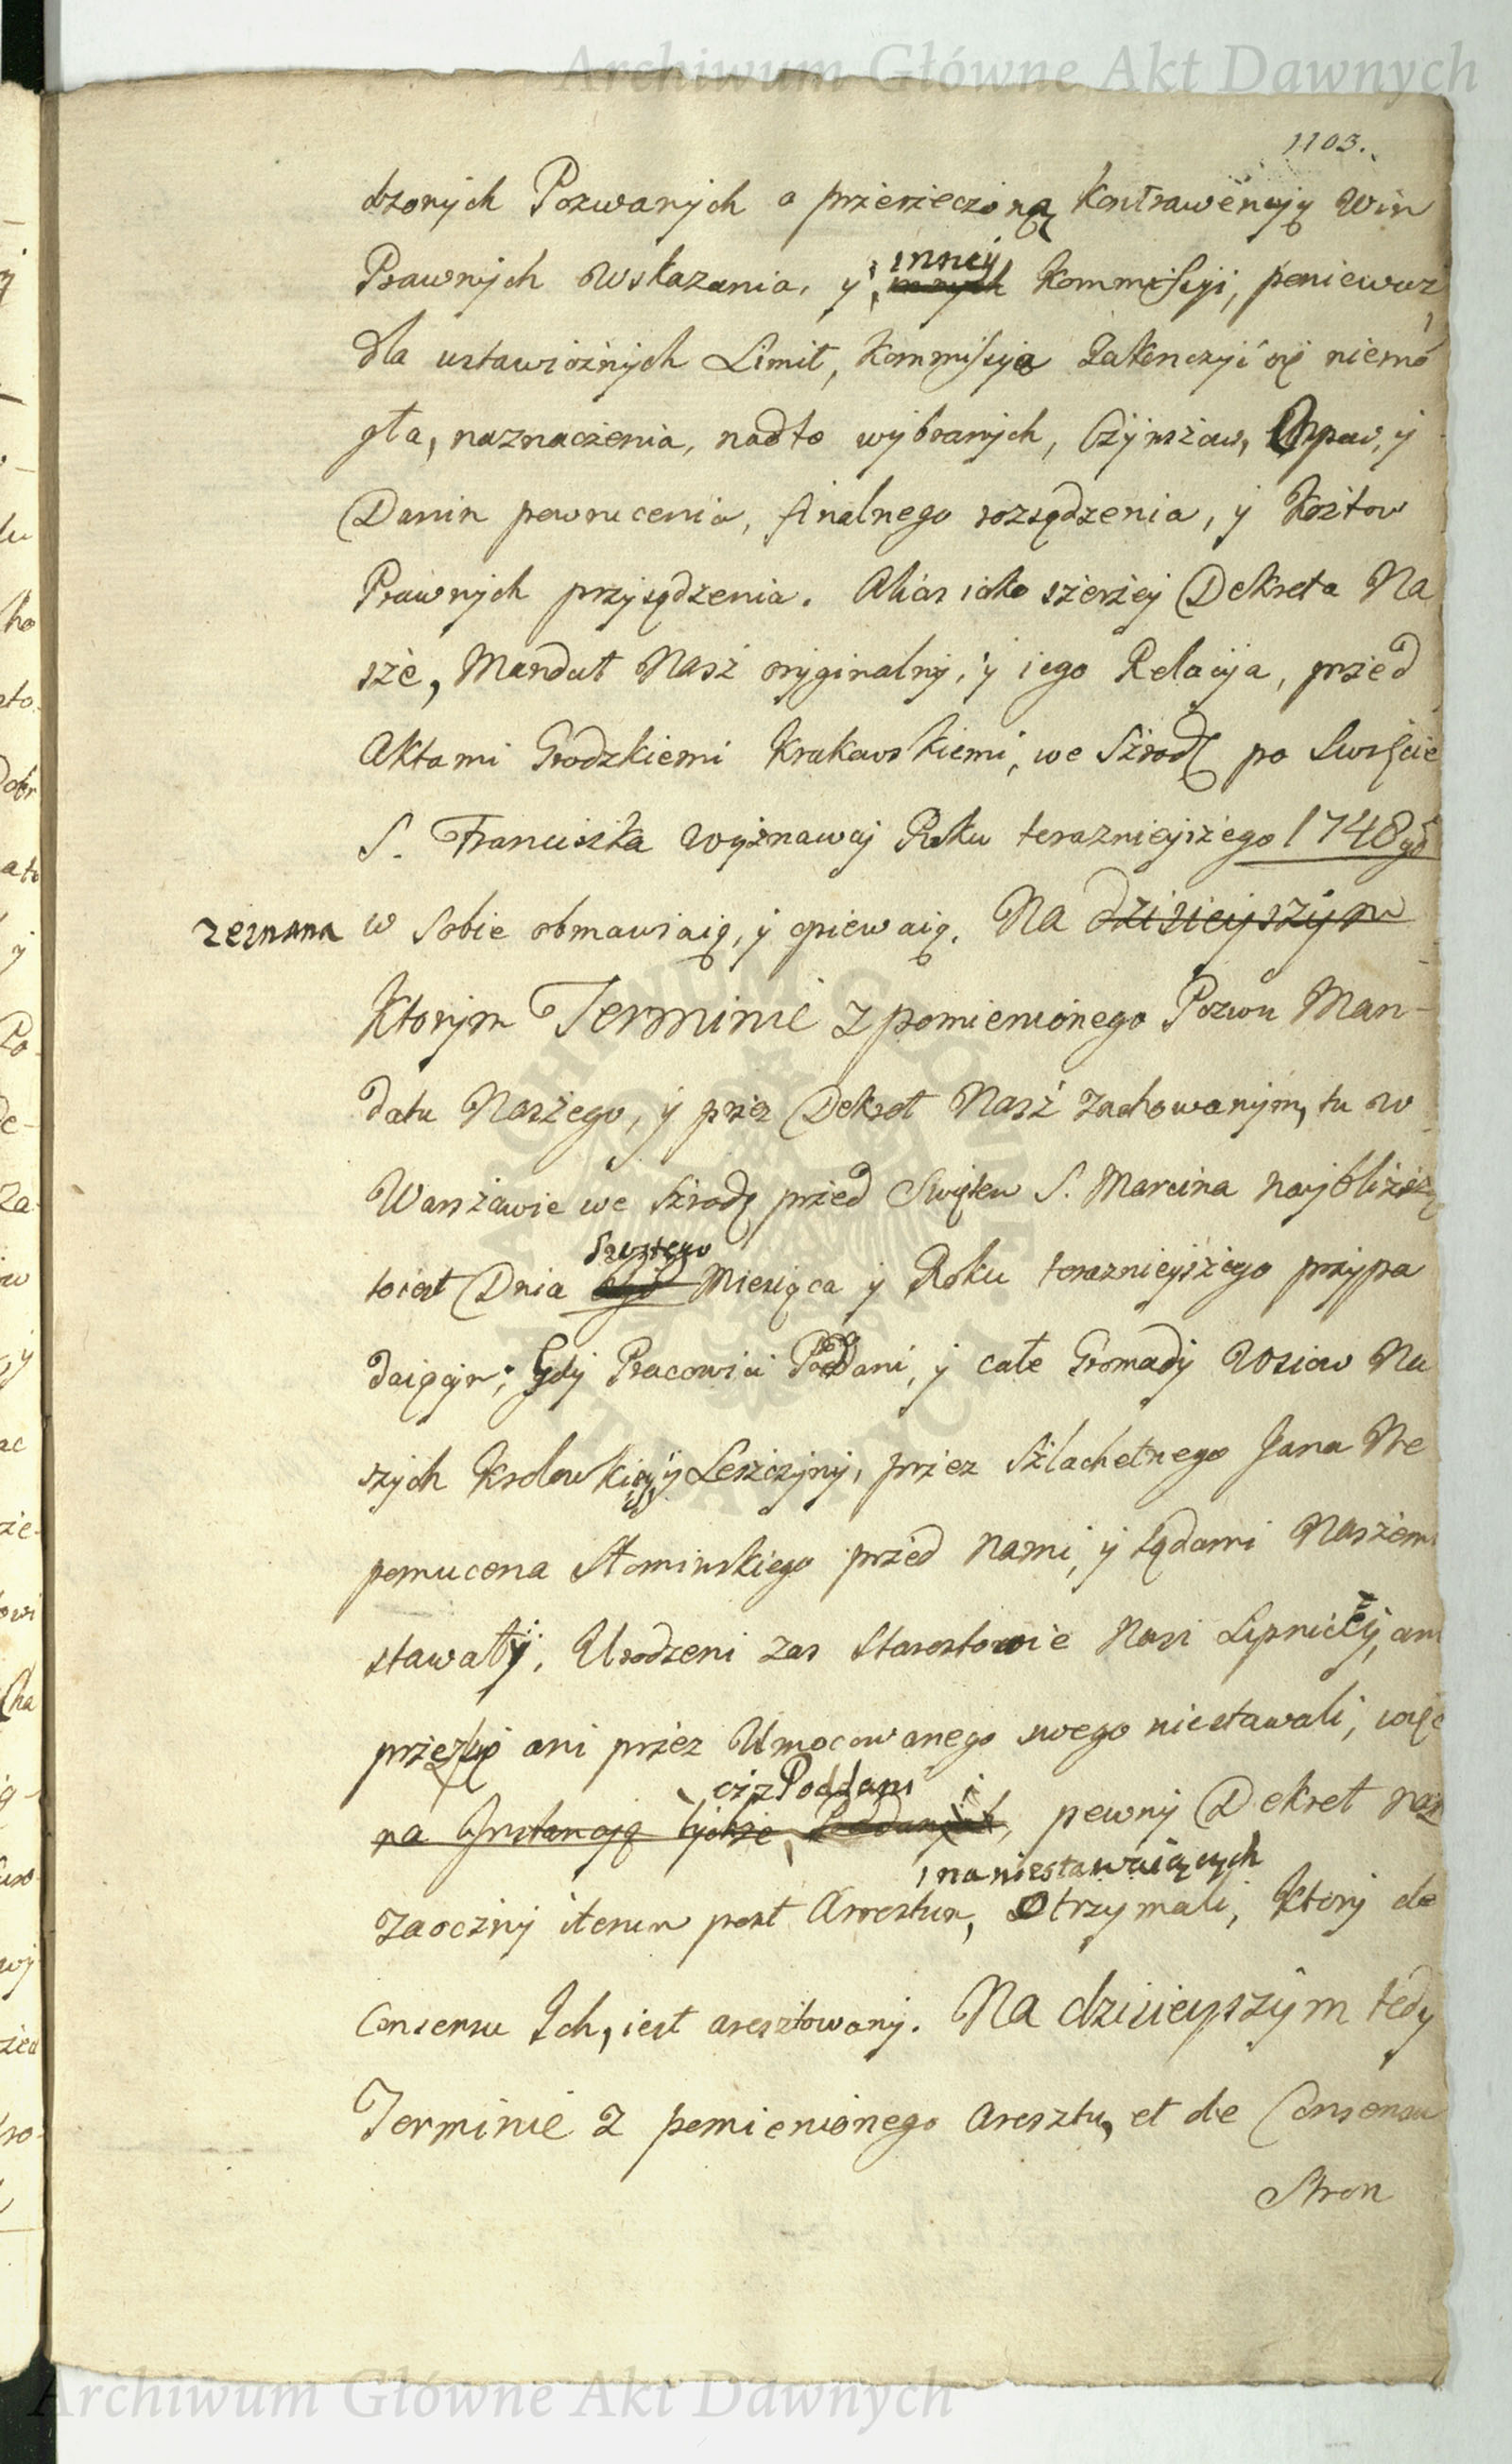 Archiwum Główne Akt Dawnych
1103.
dzonych Pozwanych o przerzeczoną Kontrawencyą Win
Prawnych wskazania, y innych inney Kommissyi, poniewaz
dla ustawicznych Limit, Kommissyia Zakonczyć się niemo
gła, naznaczenia, nadto wybranych, Czynszow, Osypow, y
Danin powrucenia, finalnego rozsądzenia, y Kosztow
Prawnych przysądzenia. Alias iako szerzey Dekreta Na
sze, Mandat Nasz oryginalny, y iego Relacyia, przed
Aktami Grodzkiemi Krakowskiemi, we Szrodę po Swięcie
S. Franciszka Roku teraznieyszego 1748go
zeznana w sobie obmawiaią, y opiewaią. Na dzisieyszym
Ktorym Terminie z pomienionego Pozwu Man-
datu Naszego, y przez Dekret Nasz zachowanym, tu w
Warszawie we Szrodę przed Swiętem S. Marcina naybliższą
to iest Dnia Szostego Miesiąca y Roku teraznieyszego przypa
daiącym; Gdy Pracowici Poddani, y całe Gromady Wsiow Na
szych Krolowkiey y Leszczyny, przez Szlachetnego Jana Ne
pomucena Słominskiego przed Nami, y Sądami Naszemi
stawały, Urodzeni zas Starostowie Nasi Lipniccy, ani
przez się ani przez Umocowanego swego niestawali, więc
ciz Poddani
na Instancyą tychże Poddanych, pewny Dekret nasz
i na niestawaiących
Zaoczny iterum post Arrestum, otrzymali, Ktory de
Consensu Ich, iest aresztowany. Na dzisieyszym tedy
Terminie z pomienionego Aresztu, et de Consensu
Stron
Archiwum Główne Akt Dawnych